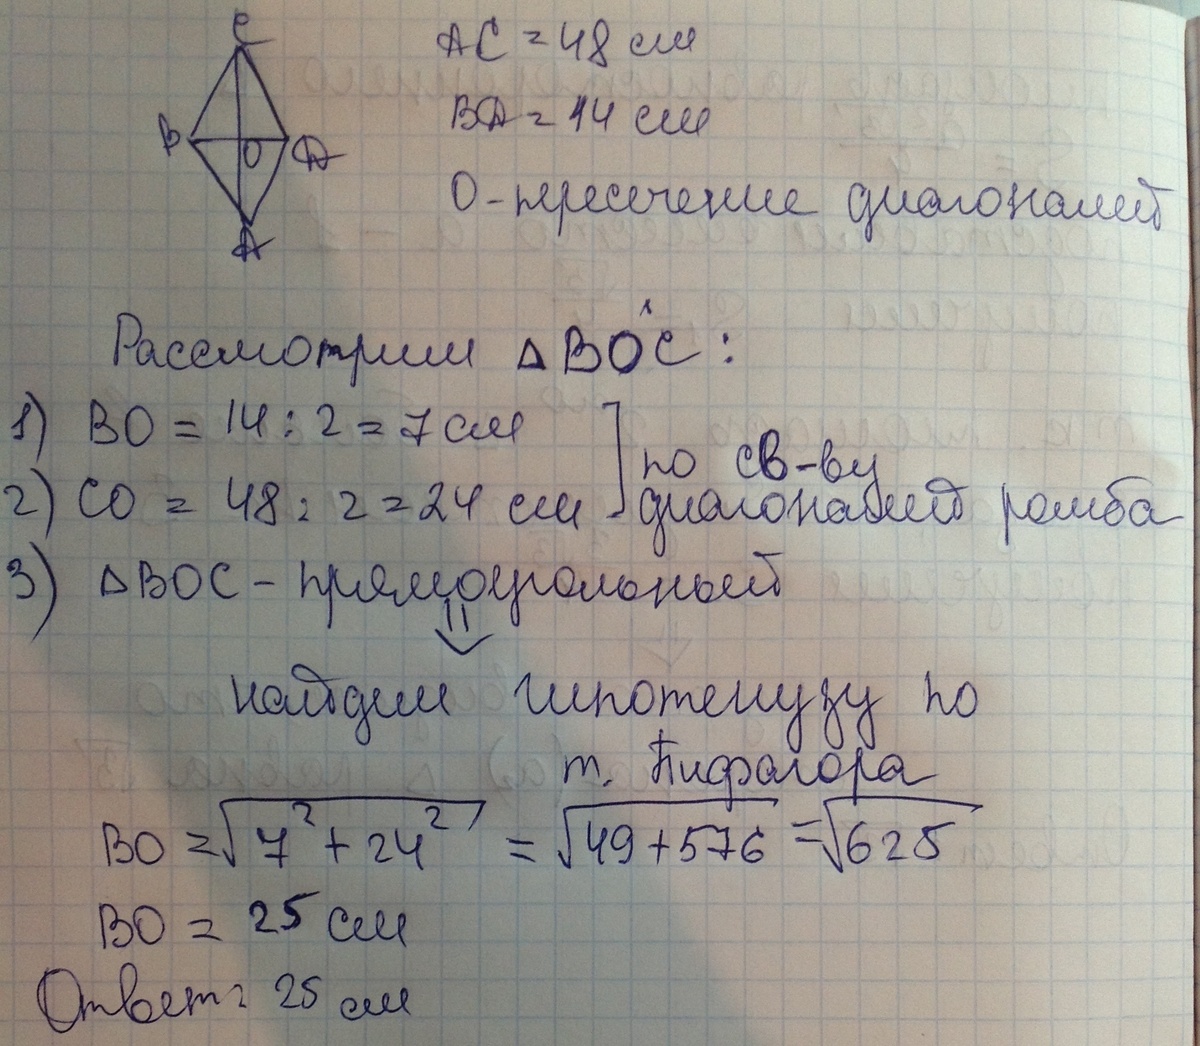 C
AC = 48 см
BD = 14 см
B O D
A
O - пересечение диагоналей
Рассмотрим △BOC:
1) BO = 14 : 2 = 7 см
2) CO = 48 : 2 = 24 см
по св-ву
диагоналей ромба
3) △BOC - прямоугольный
⇓
найдем гипотенузу по
т. Пифагора
BO = √7² + 24² = √49 + 576 = √625
BO = 25 см
Ответ: 25 см